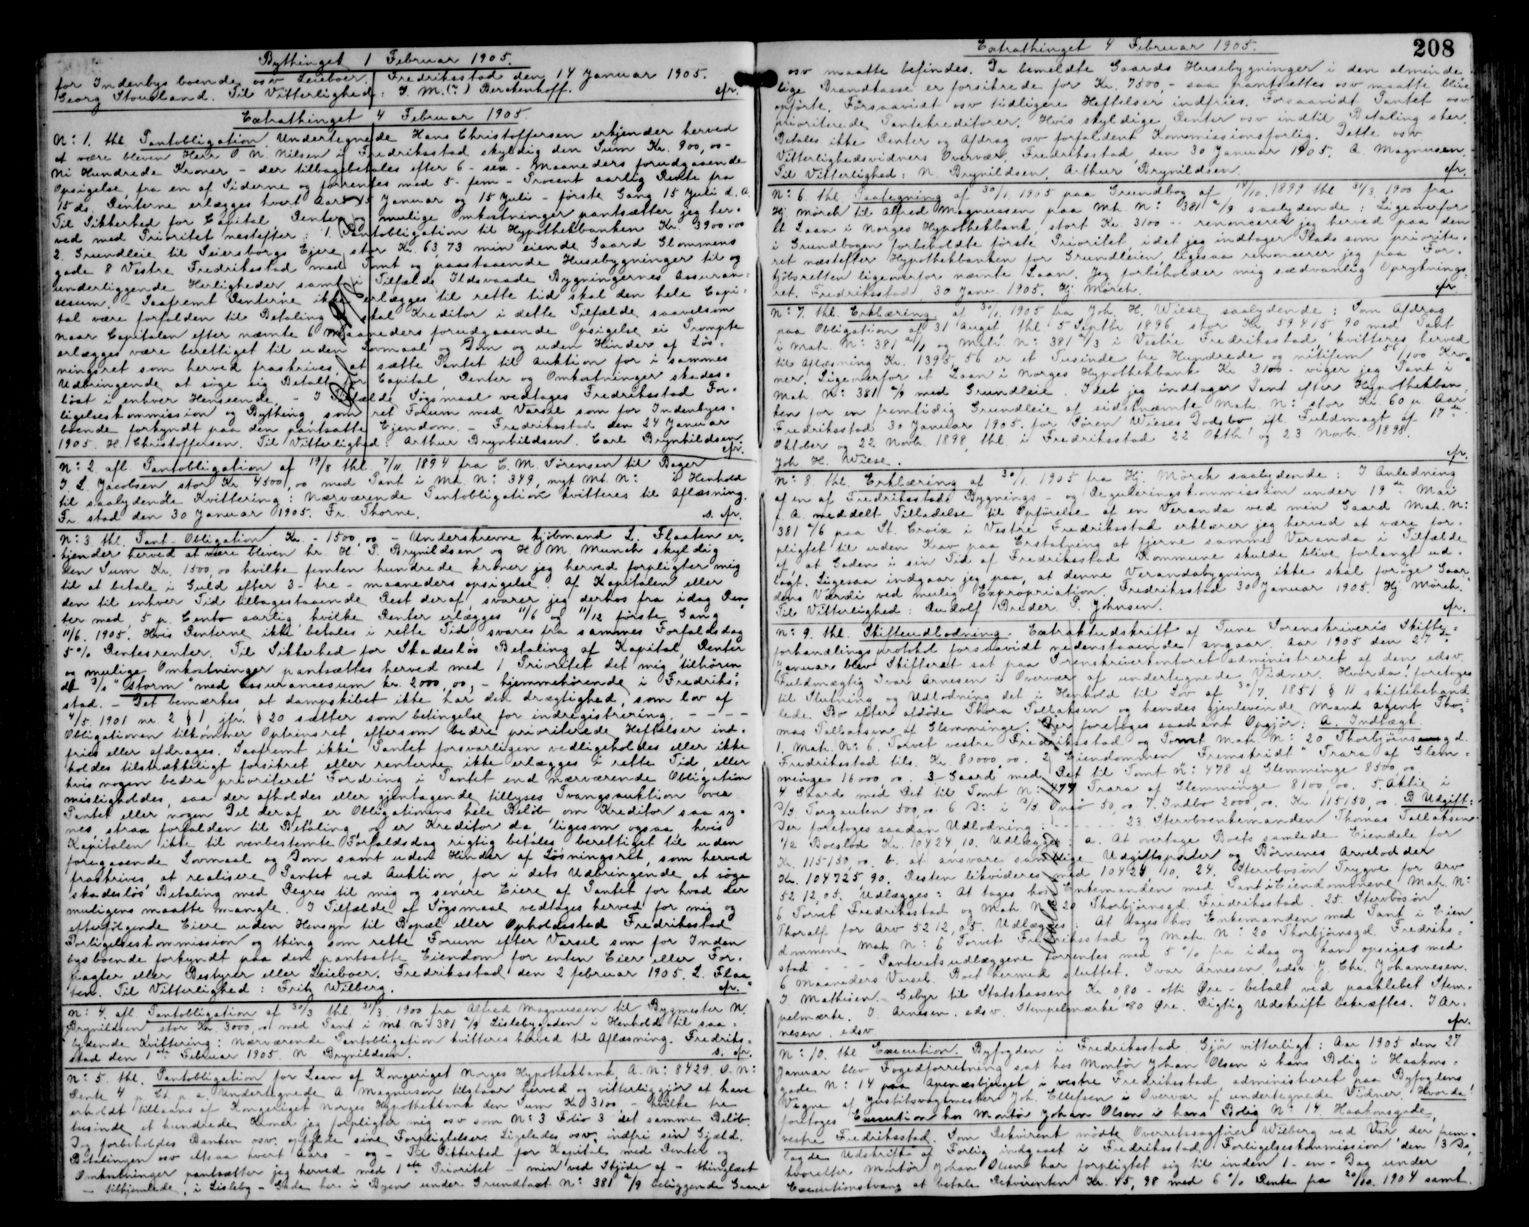 Bythinget 1 Februar 1905.
for Indenbys boende osv Leieboer. Fredriksstad den 14 Januar 1905.
Georg Stousland. Til Vitterlighed: J. M. Berckenhoff. efr.
Extrathinget 4 Februar 1905.
N: 1. thl. Pantobligation. Undertegnede Hans Christoffersen erkjender herved
at være bleven Herr O N. Nilsen i Fredriksstad skyldig den Sum Kr. 900,00 -
Ni Hundrede Kroner - der tilbagebetales efter 6 - sex - Maaneders forudgaaende
Opsigelse fra en af Siderne og forrentes med 5 - fem - Procent aarlig Rente fra
15 ds. Renterne erlægges hvert Aars 15 Januar og 15 Juli - første Gang 15 Juli d. A.
Til Sikkerhed for Capital, Renter og mulige Omkostninger pantsætter jeg her-
ved med Prioritet næstefter: 1. Pantobligation til Hypothekbanken Kr. 3900.00
2. Grundleie til Leiersborgs Ejere stor Kr. 63,73 min eiende Gaard Glommens
gade 8 Vestre Fredriksstad med Tomt og paastaaende Husebygninger til og
underliggende Herligheder, samt i Tilfælde Ildsvaade Bygningernes Assuran-
cesum. - Saafremt Renterne ikke erlægges til rette tid skal den hele Capi-
tal være forfalden til Betaling skal Kreditor i dette Tilfælde saavelsom
naar Capitalen efter nævnte 6 Maaneders forudgaaende Opsigelse ei Prompte
erlægges være berettiget til uden Lovmaal og Dom og uden Hinder af Løs-
ningsret som herved fraskrives, at sætte Pantet til Auktion for i sammes
Udbringende at søge sig Betalt for Capital, Renter og Omkostninger skades-
løst i enhver Henseende. - I Tilfælde Søgsmaal vedtages Fredriksstad For-
ligelseskommission og Bything som ret Forum med Varsel som for Indenbyes-
boende forkyndt paa den pantsatte Ejendom. - Fredriksstad den 24 Januar
1905. H. Christoffersen. Til Vitterlighed: Arthur Brynildsen. Carl Brynildsen.
efr.
N: 2. afl. Pantobligation af 19/8 thl. 7/11 1894 fra C. M. Sørensen til Bager
J. L. Jacobsen stor Kr. 4500,00 med Pant i Mt. N: 349, nyt Mt. N: i Henhold
til saalydende Kvittering: Nærværende Pantobligation kvitteres til Aflæsning.
Fr.stad den 30 Januar 1905. Fr. Thorne. s. efr.
N: 3. thl. Pant-Obligation. Kr. - 1500,00 - Underskrevne kjøbmand L. Flaaten er-
kjender herved at være bleven hr. H. S. Brynildsen og H M. Munch skyldig
den Sum Kr. 1500,00 hvilke femten hundrede kroner jeg herved forpligter mig
til at betale i Guld efter 3 - tre - maaneders opsigelse. Af Kapitalen eller
den til enhver Tid tilbagestaaende Rest deraf, svarer jeg derhos fra idag Ren-
ter med 5 p. Cento aarlig, hvilke Renter erlægges 11/6 og 11/12 første Gang
11/6. 1905. Hvis Renterne ikke betales i rette Tid, svares fra sammes Forfaldsdag
5% Rentesrenter. Til Sikkerhed for skadesløs Betaling af Kapital, Renter
og mulige Omkostninger pantsættes herved med 1 Prioritet det mig tilhøren-
de D/S "Storm" med assurancesum kr. 2000,00, - hjemmehørende i Fredriks-
stad. - Det bemærkes, at dampskibet ikke har det drægtighed, som lov af
4/5 1901 nr. 2 § 1, jfr. § 20 sætter som betingelse for indregistrering. - - - -
Obligationen tilkommer Optrinsret, eftersom bedre prioriterede Heftelser ind-
fries eller afdrages. Saafremt ikke Pantet forsvarligen vedligeholdes eller ikke
holdes tilstrækkeligt forsikret eller renterne ikke erlægges i rette Tid, eller
hvis nogen bedre prioriteret Fordring i Pantet end nærværende Obligation
misligholdes, saa der afholdes eller gjentagende tillyses Tvangsauktion over
Pantet eller nogen Del deraf er Obligationens hele Beløb, om Kreditor saa sy-
nes, strax forfalden til Betaling og er Kreditor da, ligesom ogsaa, hvis
Kapitalen ikke til ovenbestemte Forfaldsdag rigtig betales, berettiget til uden
foregaaende Lovmaal og Dom samt uden Hinder af Løsningsret, som herved
fraskrives, at realisere Pantet ved Auktion, for i dets Udbringende at søge
skadesløs Betaling med Regres til mig og senere Eiere af Pantet for hvad der
muligens maatte mangle. I Tilfælde af Søgsmaal vedtages herved for mig og
efterfølgende Eiere uden Hensyn til Bopæl eller Opholdssted Fredriksstad
Forligelseskommission og thing som rette Forum efter Varsel som for Inden
bysboende forkyndt paa den pantsatte Eiendom for enten Eier eller For-
pagter eller Bestyrer eller Leieboer. Fredriksstad den 2 februar 1905. L. Flaa-
ten. Til Vitterlighed: Fritz Wilberg. efr.
N: 4. afl. Pantobligation af 30/3 thl. 31/3. 1900 fra Alfred Magnussen til Bygmester N.
Brynildsen stor Kr. 3000,00 med Pant i mt N: 381 a/9 Lislebygaden i Henhold til saa-
lydende Kvittering: Nærværende Pantobligation kvitteres herved til Aflæsning. Fredriks-
stad den 1ste Februar 1905. N Brynildsen. s. efr.
N: 5. thl. Pantobligation for Laan af Kongeriget Norges Hypothekbank A. N: 8429. O. N:
Rente 4 p. Ct. p. a. Undertegnede A Magnussen tilstaar herved og vitterliggjør at have
erholdt tillaans af Kongeriget Norges Hypothekbank den Sum Kr 3100 - hvilke tre
tusinde et hundrede Kroner jeg forpligter mig osv som N: 3 Folio 3 det samme Beløb.
Dog forbeholdes Banken osv. opfylde sine Forpligtelser. Ligeledes osv. indfri sin Gjæld.
Betalingen osv altsaa hvert Aars - og - Til Sikkerhed for Kapital med Renter og
Omkostninger pantsætter jeg herved med 1ste Prioritet - min ved Skjøde af - thinglæst
- tilhjemlede, i Lisleby-Gade her i Byen under Grundtaxt N: 381 a/9 beliggende Gaard
Extrathinget 4 Februar 1905.
208
osv maatte befindes. Da bemeldte Gaards Husebygninger i den alminde-
lige Brandkasse er forsikrede for Kr. 7500 - saa pantsættes osv maatte blive
opførte. Forsaavidt osv tidligere Heftelser indfries. Forsaavidt Pantet osv
prioriterede Pantekreditorer. Hvis skyldige Renter osv indtil Betaling sker.
Betales ikke Renter og Afdrag osv forfaldent Kommissionsforlig. Dette osv
Vitterlighedsvidners Overvær, Fredriksstad den 30 Januar 1905. A. Magnussen.
Til Vitterlighed: N Brynildsen. Arthur Brynildsen. efr.
N: 6. thl. Paategning af 30/1 1905 paa Grundbog af 14/10 1899 thl 31/3 1900 fra
Hj. Mørch til Alfred Magnussen paa Mt. N: 381 a/9 saalydende: Ligeoverfor
et Laan i Norges Hypothekbank, stort Kr. 3100 - renoncerer jeg herved paa den
i Grundbogen forbeholdte første Prioritet, idet jeg indtager Plads som priorite-
ret næstefter Hypothekbanken for Grundleien. Ligesaa renoncerer jeg paa For-
kjøbsretten ligeoverfor nævnte Laan. Jeg forbeholder mig sædvanlig Oprykningsret.
Fredriksstad 30 Janr. 1905. Hj. Mørch. efr.
N: 7. thl. Erklæring af 30/1. 1905 fra Joh. H. Wiese saalydende: Som Afdrag
paa Obligation af 31 August thl. 5 Septbr 1896 stor Kr. 59415.90 med Pant
i Mat. N: 381 a/1 og Matr. N: 381 a/3 i Vestre Fredriksstad, kvitteres herved
til Aflæsning Kr. 1395.56 er et Tusinde tre Hundrede og nitifem 56/100 Kro-
ner. Ligeoverfor et Laan i Norges Hypothekbank Kr 3100 - viger jeg Pant i
Mat. N: 381 a/9 med Grundleie. Idet jeg indtager Pant efter Hypothekban-
ken for en fremtidig Grundleie af sidstnævnte Mat. N: stor Kr. 60 pr. Aar
Fredriksstad 30 Januar 1905. for Søren Wieses Dødsbo ifl. Fuldmagt af 17de
Oktober og 22 Novb. 1898, thl. i Fredriksstad 22 Oktb. og 23 Novb. 1898.
Joh. H. Wiese. efr.
N: 8. thl. Erklæring af 30/1 1905 fra Hj. Mørch saalydende: I Anledning
af en af Fredriksstads Bygnings- og Reguleringskommission under 19de Mai
f. A. meddelt Tilladelse til Opførelse af en Veranda ved min Gaard Mat. N:
381 a/6 paa St. Croix i Vestre Fredriksstad erklærer jeg herved at være for-
pligtet til uden Krav paa Erstatning at fjerne samme Veranda i Tilfælde
af at Gaden i sin Tid af Fredriksstad Kommune skulde blive forlangt ud-
lagt. Ligesaa indgaar jeg paa, at denne Verandabygning ikke skal forøge Gaar-
dens Værdi ved mulig Expropriation. Fredriksstad 30 Januar 1905. Hj. Mørch.
Til Vitterlighed: Rudolf Breder. P. Johnsen. efr.
N: 9. thl. Skifteudlodning. Extraktudskrift af Tune Sorenskriveris Skifte-
forhandlingsprotokol forsaavidt nedenstaaende angaar. Aar 1905 den 27de
Januar blev Skifteret sat paa Sorenskriverkontoret administreret af den edsv.
Fuldmægtig Ivar Arnesen i Overvær af undertegnede Vidner. Hvorda foretoges
til Slutning og Udlodning det i Henhold til Lov af 30/7. 1851 § 11 skiftebehand-
lede Bo efter afdøde Thora Tollaksen og hendes gjenlevende Mand agent Tho-
mas Tollaksen af Glemminge. Der foretoges saadant Opgjør: A. Indtægt.
1. Mat. N: 6. Torvet vestre Fredriksstad og Tomt Mat. N: 20 Thorbjørnsgd.
Fredriksstad tils. Kr. 80000,00. 2. Eiendommen "Fremskridt" Trara af Glem-
minge 16000,00. 3 Gaard med Ret til Tomt N: 478 af Glemminge 8500,00.
4 Gaard med Ret til Tomt N: 477 Trara af Glemminge 8100,00. 5. Aktie i
D/S Torgauten 500,00. D: i D/S Onsø 50,00. 7. Indbo 2000,00. Kr. 115150,00. B Udgift:
Der foretoges saadan Udlodning: - - - - - 23. Stervboenkemanden Thomas Tollaksen
1/2 Boeslod Kr. 10424,10. Udlægges: a. At overtage Boets samlede Eiendele for
Kr. 115150,00. b. at ansvare samtlige Udgiftsposter og Børnenes Arvelodder
Kr. 104725.90. Resten likvideres med 10424.10. 24. Stervbosøn Trygve for Arv
5212,05. Udlægges: At tages hos Enkemanden med Pant i Eiendommene Mat. N:
6 Torvet Fredriksstad og Mat. N: 20 Thorbjørnsgd. Fredriksstad. 25. Stervbosøn
Thoralf for Arv 5212,05. Udlægges: At tages hos Enkemanden med Pant i Eien-
dommene Mat. N: 6 Torvet Fredriksstad og Mat. N: 20 Thorbjørnsgd. Fredriks-
stad - - - Panteretsudlæggene forrentes med 5% fra idag og kan opsiges med
6 maaneders Varsel. Boet hermed sluttet. Ivar Arnesen edsv J. Chr. Johannesen.
J Mathisen. Gebyr til Statskassen Kr. 0.80 - otti Øre - betalt ved paaklebet Stem-
pelmærke. I. Arnesen. edsv. Stempelmærke 80 Øre. Rigtig Udskrift bekræftes. I Ar-
nesen edsv. efr.
N: 10. thl. Execution. Byfogden i Fredriksstad Gjør vitterligt: Aar 1905 den 27
Januar blev Fogedforretning sat hos Montør Johan Olsen i hans Bolig i Haakons-
gade N: 14 paa Apenæsbjerget i vestre Fredriksstad, administreret paa Byfogdens
Vegne af Justitsvagtmester Joh. Ellefsen i Overvær af undertegnede Vidner. Hvorda
foretoges Execution hos Montør Johan Olsen i hans Bolig N: 14 Haakonsgade,
vestre Fredriksstad. Som Rekvirent mødte Overretssagfører Wilberg ved Vår der frem-
lagde Udskrift af Forlig indgaaet i Fredriksstad Forligelseskommission den 3 ds,
hvorefter Montør Johan Olsen har forpligtet sig til inden 1 - en - Dag under
Executionstvang at betale Rekvirenten Kr. 45,98 med 6% Rente fra 20/10. 1904 samt